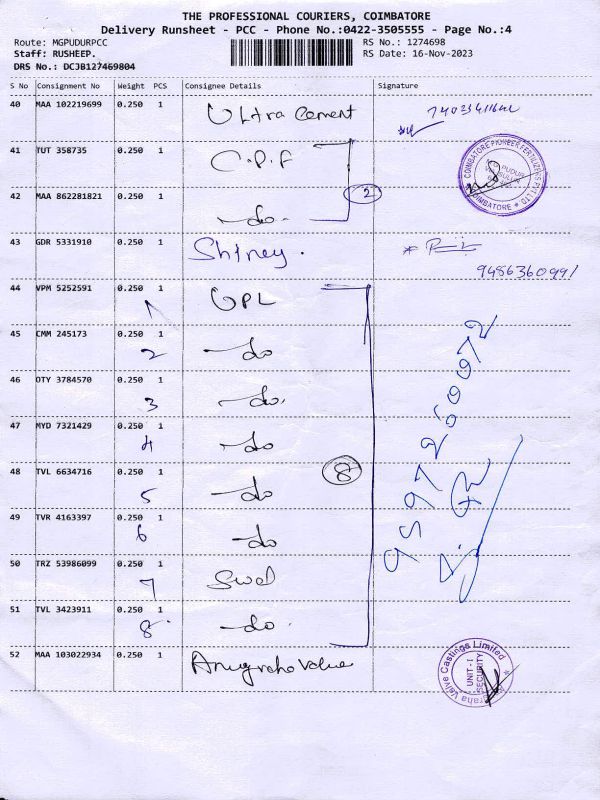 THE PROFESSIONAL COURIERS, COIMBATORE
Delivery Runsheet - PCC - Phone No.:0422-3505555 - Page No.:4
Route: MGPUDURPCC
RS No.: 1274698
Staff: RUSHEEP.
RS Date: 16-Nov-2023
DRS No.: DCJB127469804
S No Consignment No Weight PCS Consignee Details Signature
40 MAA 102219699 0.250 1 Ultra Cement
41 TUT 358735 0.250 1 C.P.F
COIMBATORE PIONEER FERTILIZERS PVT LTD
COIMBATORE
42 MAA 862281821 0.250 1 do. 2
43 GDR 5331910 0.250 1 Shiney.
9486360991
44 VPM 5252591 0.250 1 UPL
1
45 CMM 245173 0.250 1 do
2
46 OTY 3784570 0.250 1 do.
3
47 MYD 7321429 0.250 1 do
4
48 TVL 6634716 0.250 1 do 8
5
49 TVR 4163397 0.250 1 do
6
9597260972
50 TRZ 53986099 0.250 1 Swel
7
51 TVL 3423911 0.250 1 do.
8
52 MAA 103022934 0.250 1 Anugraha Valve
Valve Castings Limited
UNIT-I
SECURITY